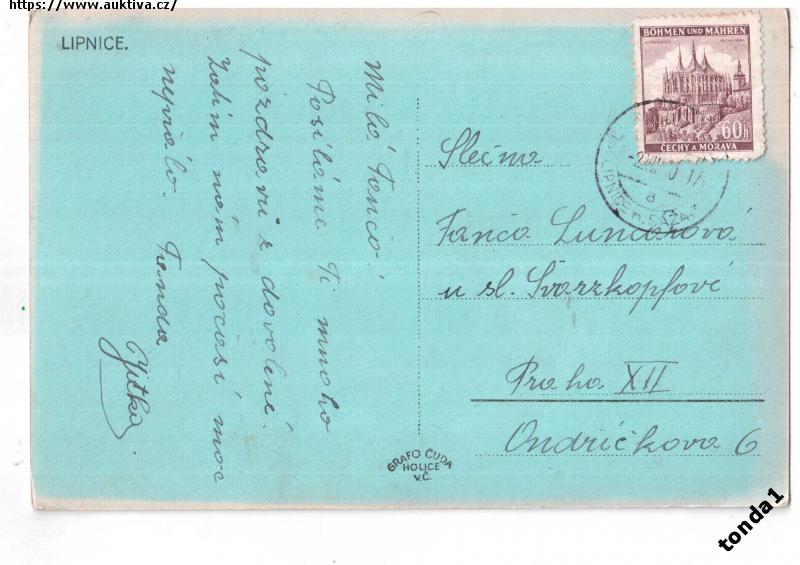 https://www.auktiva.cz/
LIPNICE.
Milá Fančo!
Posíláme Ti mnoho
pozdravů z dovolené.
Zatím nám počasí moc
nepřálo. Fenda
Jitka
BÖHMEN UND MÄHREN
60h
ČECHY A MORAVA
LIPNICE n. SÁZAV
a
Slečna
Fanča Lundáková
u sl. Švarzkopfové
Praha XII
Ondříčkova 6
GRAFO ČUDA
HOLICE
V.Č.
tonda1